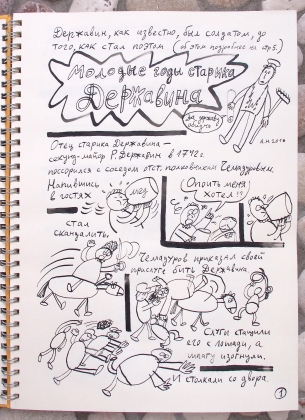 Державин, как известно, был солдатом, до
того, как стал поэтом (об этом подробнее на стр 5.)
Молодые годы старика
Державина
За державу
обидно
Отец старика Державина —
секунд-майор Р. Державин в 1742 г.
поссорился с соседом отст. полковником Чемадуровым.
Напившись
в гостях
мёд
Опоить меня
хотел!!
стал
скандалить.
Чемадуров приказал своей
прислуге бить Державина.
Слуги стащили
его с лошади, а
шпагу изогнули.
И столкали со двора.
1